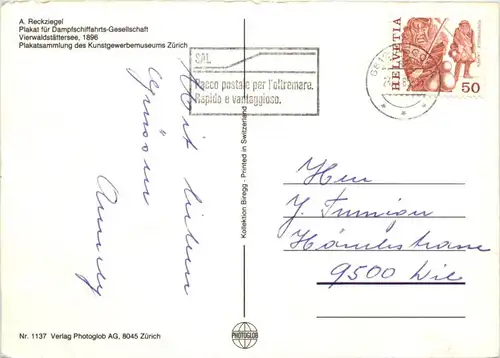 A. Reckziegel
Plakat für Dampfschiffahrts-Gesellschaft
Vierwaldstättersee, 1896
Plakatsammlung des Kunstgewerbemuseums Zürich
SAL
Pacco postale per l'oltremare.
Rapido e vantaggioso.
HELVETIA
50
Mit lieben
Grüssen
Kollektion Biregg - Printed in Switzerland
Herr
J.
9500 Wil
Nr. 1137 Verlag Photoglob AG, 8045 Zürich
PHOTOGLOB